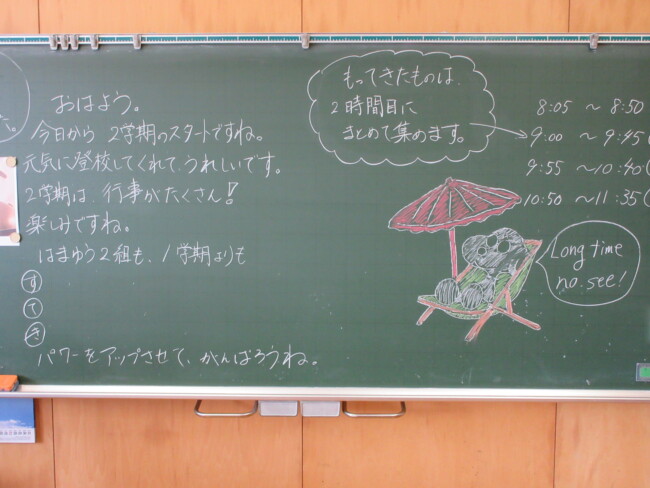 おはよう。
今日から 2学期のスタートですね。
元気に登校してくれて、うれしいです。
2学期は、行事がたくさん!
楽しみですね。
はまゆう2組も、1学期よりも
す
て
き
パワーをアップさせて、がんばろうね。
もってきたものは、
2時間目に
まとめて集めます。
8:05 〜 8:50
9:00 〜 9:45
9:55 〜 10:40
10:50 〜 11:35
Long time
no see!